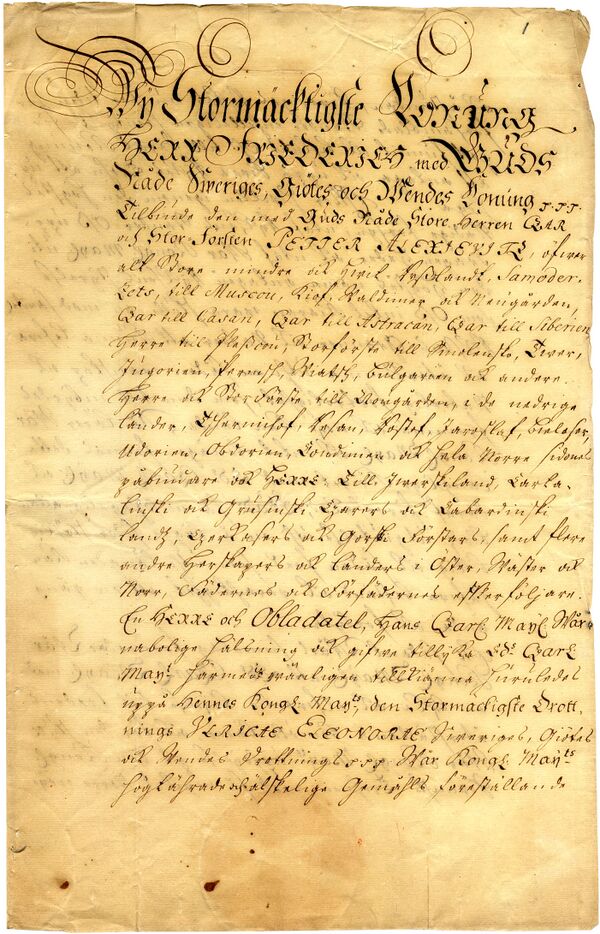 1
Wy Stormäcktigste Konung
HERR FRIEDERICH med GUDS
Nåde Sweriges, Giötes och Wendes Konung ppp.
Tilbiude den med Guds Nåde Store Herren CZAR
och Stor-Försten PETTER ALEXIEVITZ, öfwer
alt Store- mindre ock Hwit- Ryßlandt, Samoder-
Czar till Casan, Czar till Astracan, Czar till Siberien
Herre till Pleßcou, Storförste till Smolensko, Twer,
Jugorien, Permsk, Wiatsk, Bulgarien ock andere.
Herre ock StorFörste till Novgården, i de nedrige
länder, Tschernichof, Resan, Rostof, Jaroslaf, Bieloser,
Udorien, Obdorien, Condinien ock hela Norre sidones
påbiudare ock HERRE; Till Iwerskiland, Carta-
linski ock Grusinski Czarers ock Cabardinski
landz, Czerkaseers ock Gorski Förstars, samt flere
andre Herskapers ock länders i Öster, Wäster ock
Norr, Fädernes ock Förfädernes effterföljare.
En HERRE och Obladatel, Hans Czar: Mayt: Wår
nabolige hälsning ock gifwe tillyka Eds Czar:
Mayt: härmedh wänligen tillkiänna huruledes
uppå Hennes Kongl: Mayts, den Stormäcktigste Drott-
nings ULRICAE ELEONORAE Sweriges, Giötes
ock Wendes Drottnings ppp Wår Kongl: Mayts
högtährade och älskelige Gemåhls föreställande